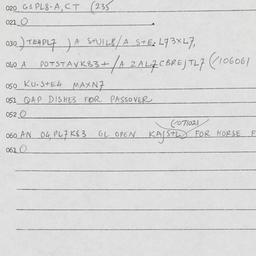 020 GSPL8-A,CT (235
021 O
030 )TEAPL7 ) A S+UIL8/A S+E. L73XL7,
040 A POTSTAVK83+/A ZAL7CBREJTL7 (/106061
050 KU.S+E4 MAXN7
051 QAP DISHES FOR PASSOVER
052 O
060 AN O4,PL7K83 GL OPEN KAJS+L) FOR HORSE F
(-071021
061 O